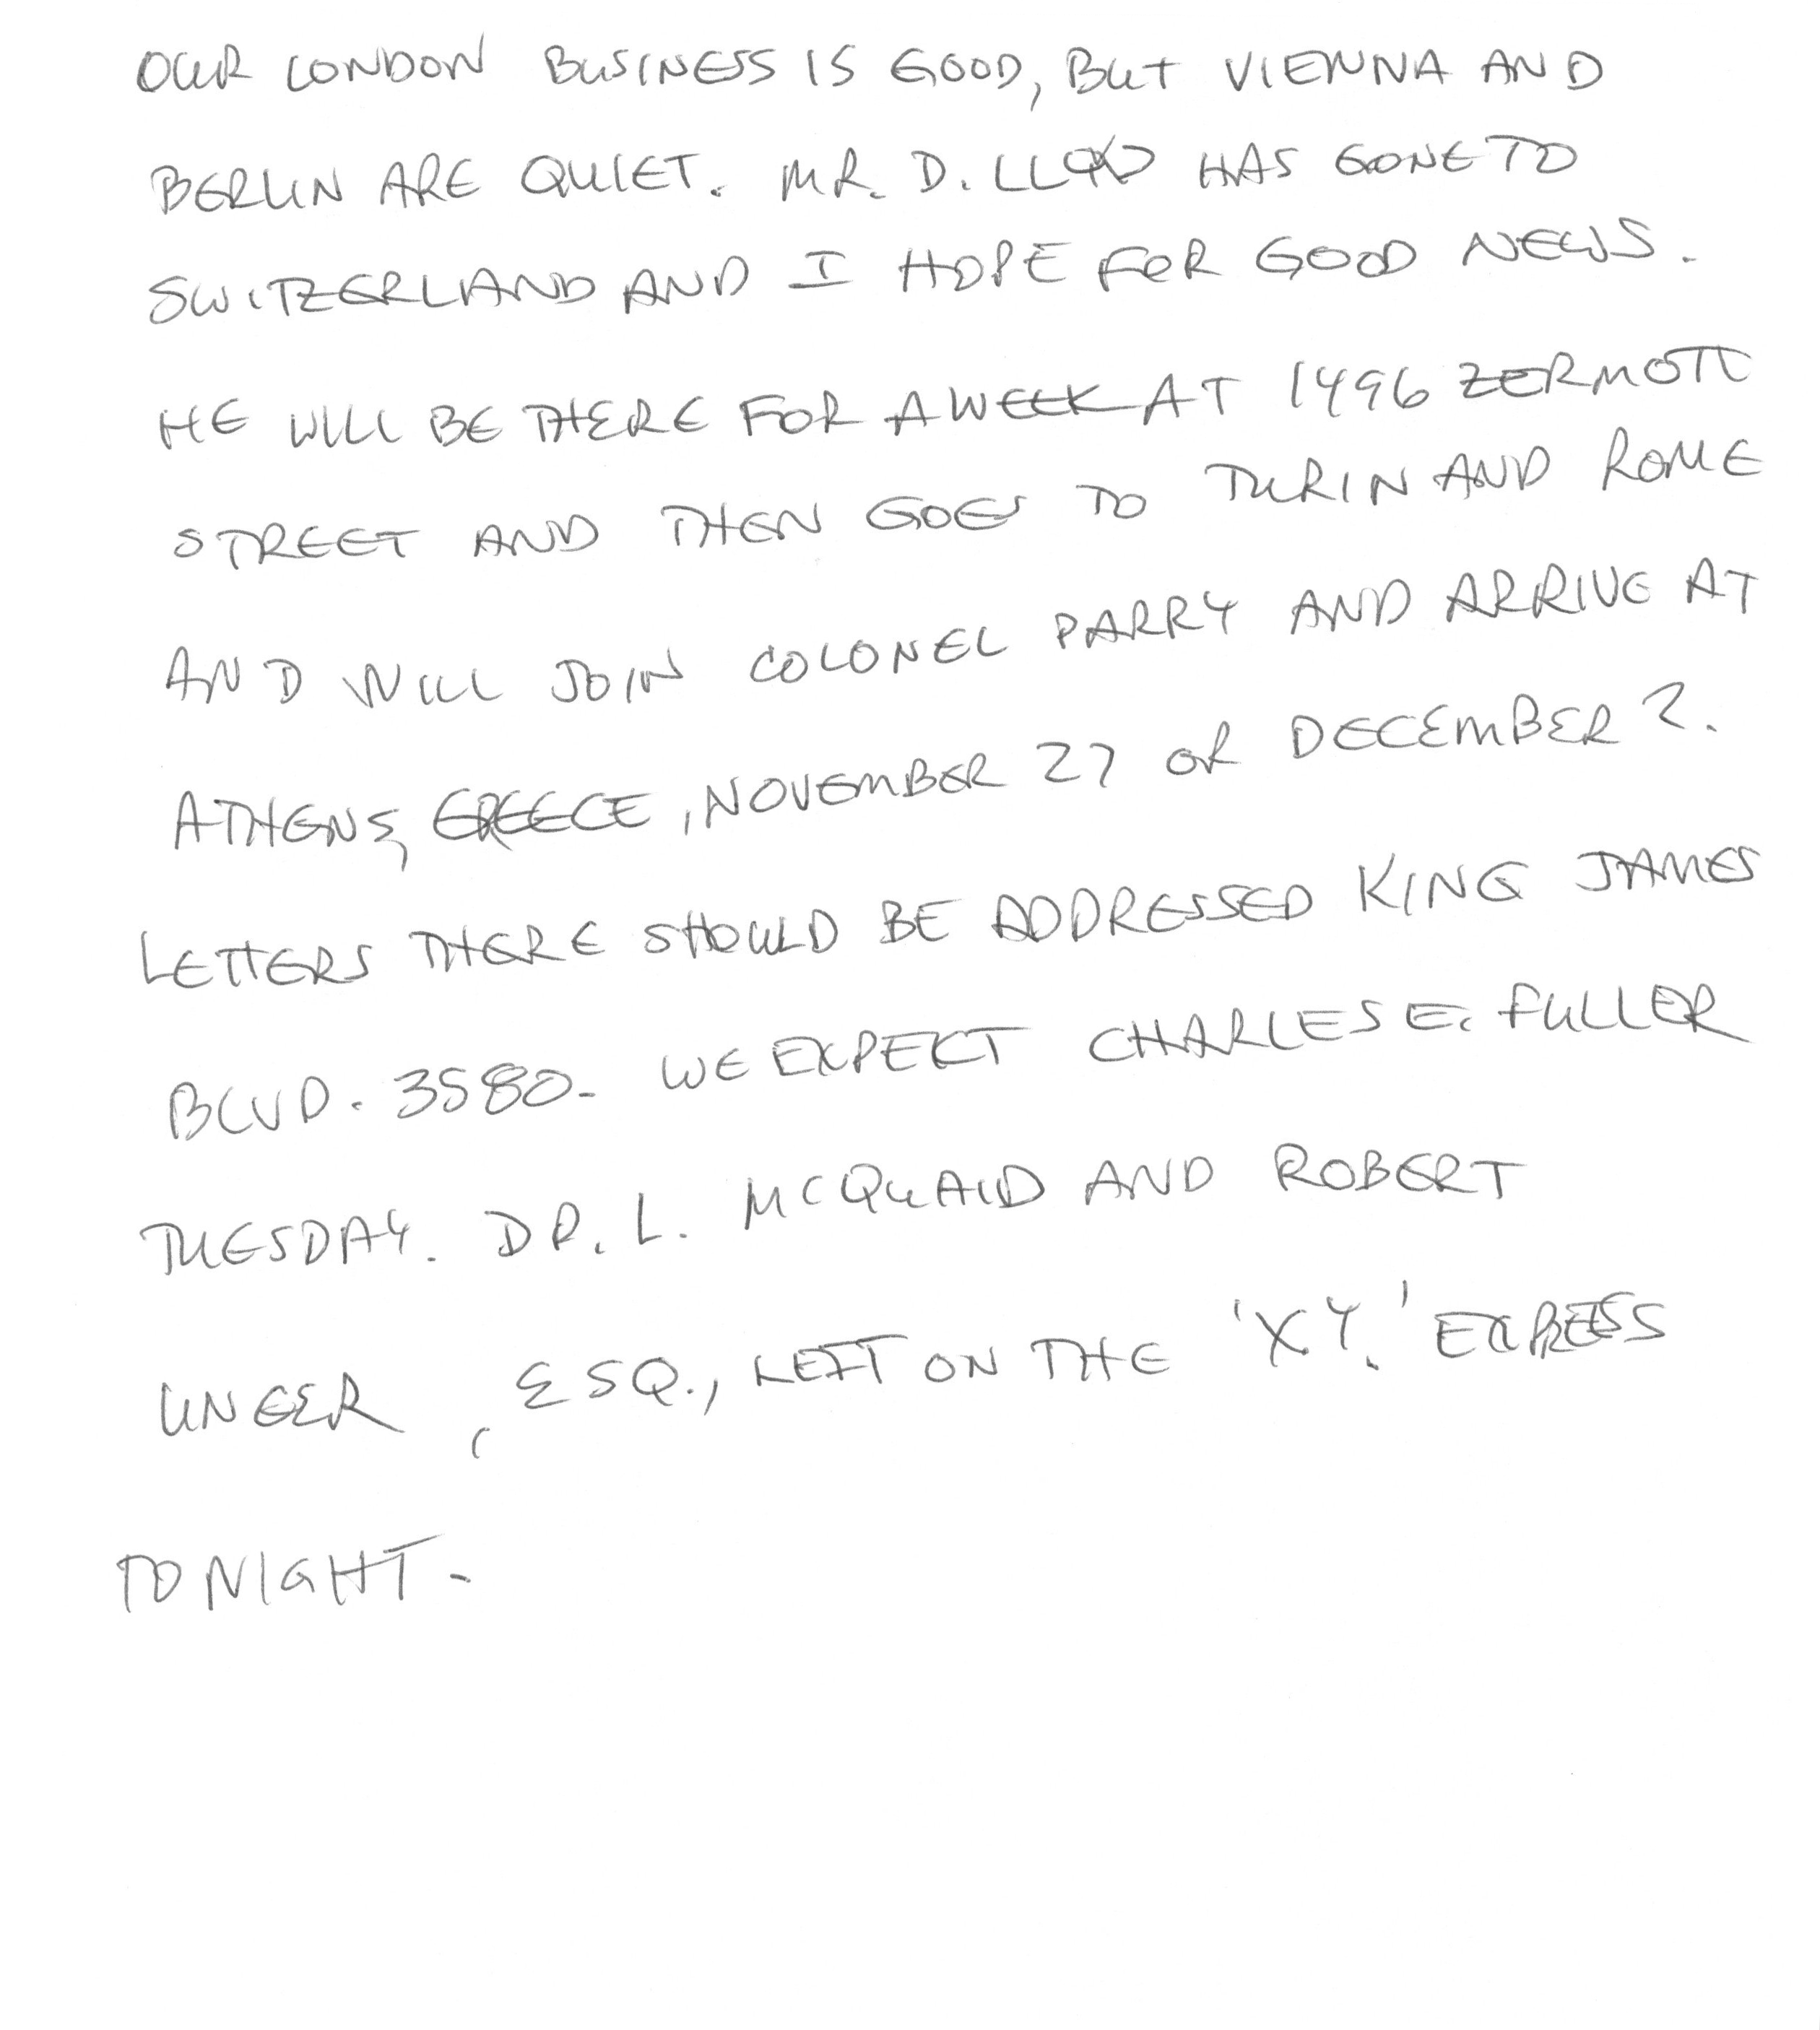 OUR LONDON BUSINESS IS GOOD, BUT VIENNA AND
BERLIN ARE QUIET. MR. D. LLOYD HAS GONE TO
SWITZERLAND AND I HOPE FOR GOOD NEWS.
HE WILL BE THERE FOR A WEEK AT 1496 ZERMOTT
STREET AND THEN GOES TO TURIN AND ROME
AND WILL JOIN COLONEL PARRY AND ARRIVE AT
ATHENS, GREECE, NOVEMBER 27 OR DECEMBER 2.
LETTERS THERE SHOULD BE ADDRESSED KING JAMES
BLVD. 3580. WE EXPECT CHARLES E. FULLER
TUESDAY. DR. L. MCQUAID AND ROBERT
UNGER, ESQ., LEFT ON THE 'X.Y.' EXPRESS
TONIGHT.